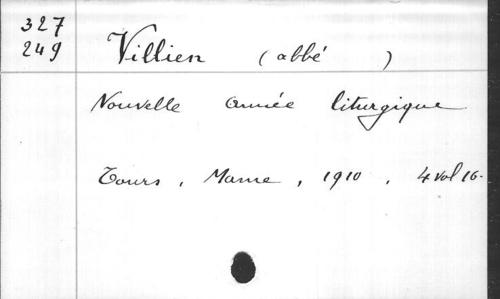 327
249
Villien (abbé )
Nouvelle année liturgique
Tours, Mame, 1910, 4 vol 16-